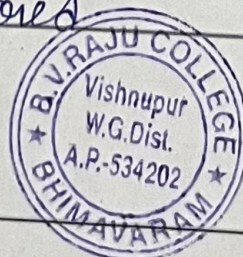 B.V.RAJU COLLEGE
Vishnupur
W.G.Dist.
A.P.-534202
★ BHIMAVARAM ★